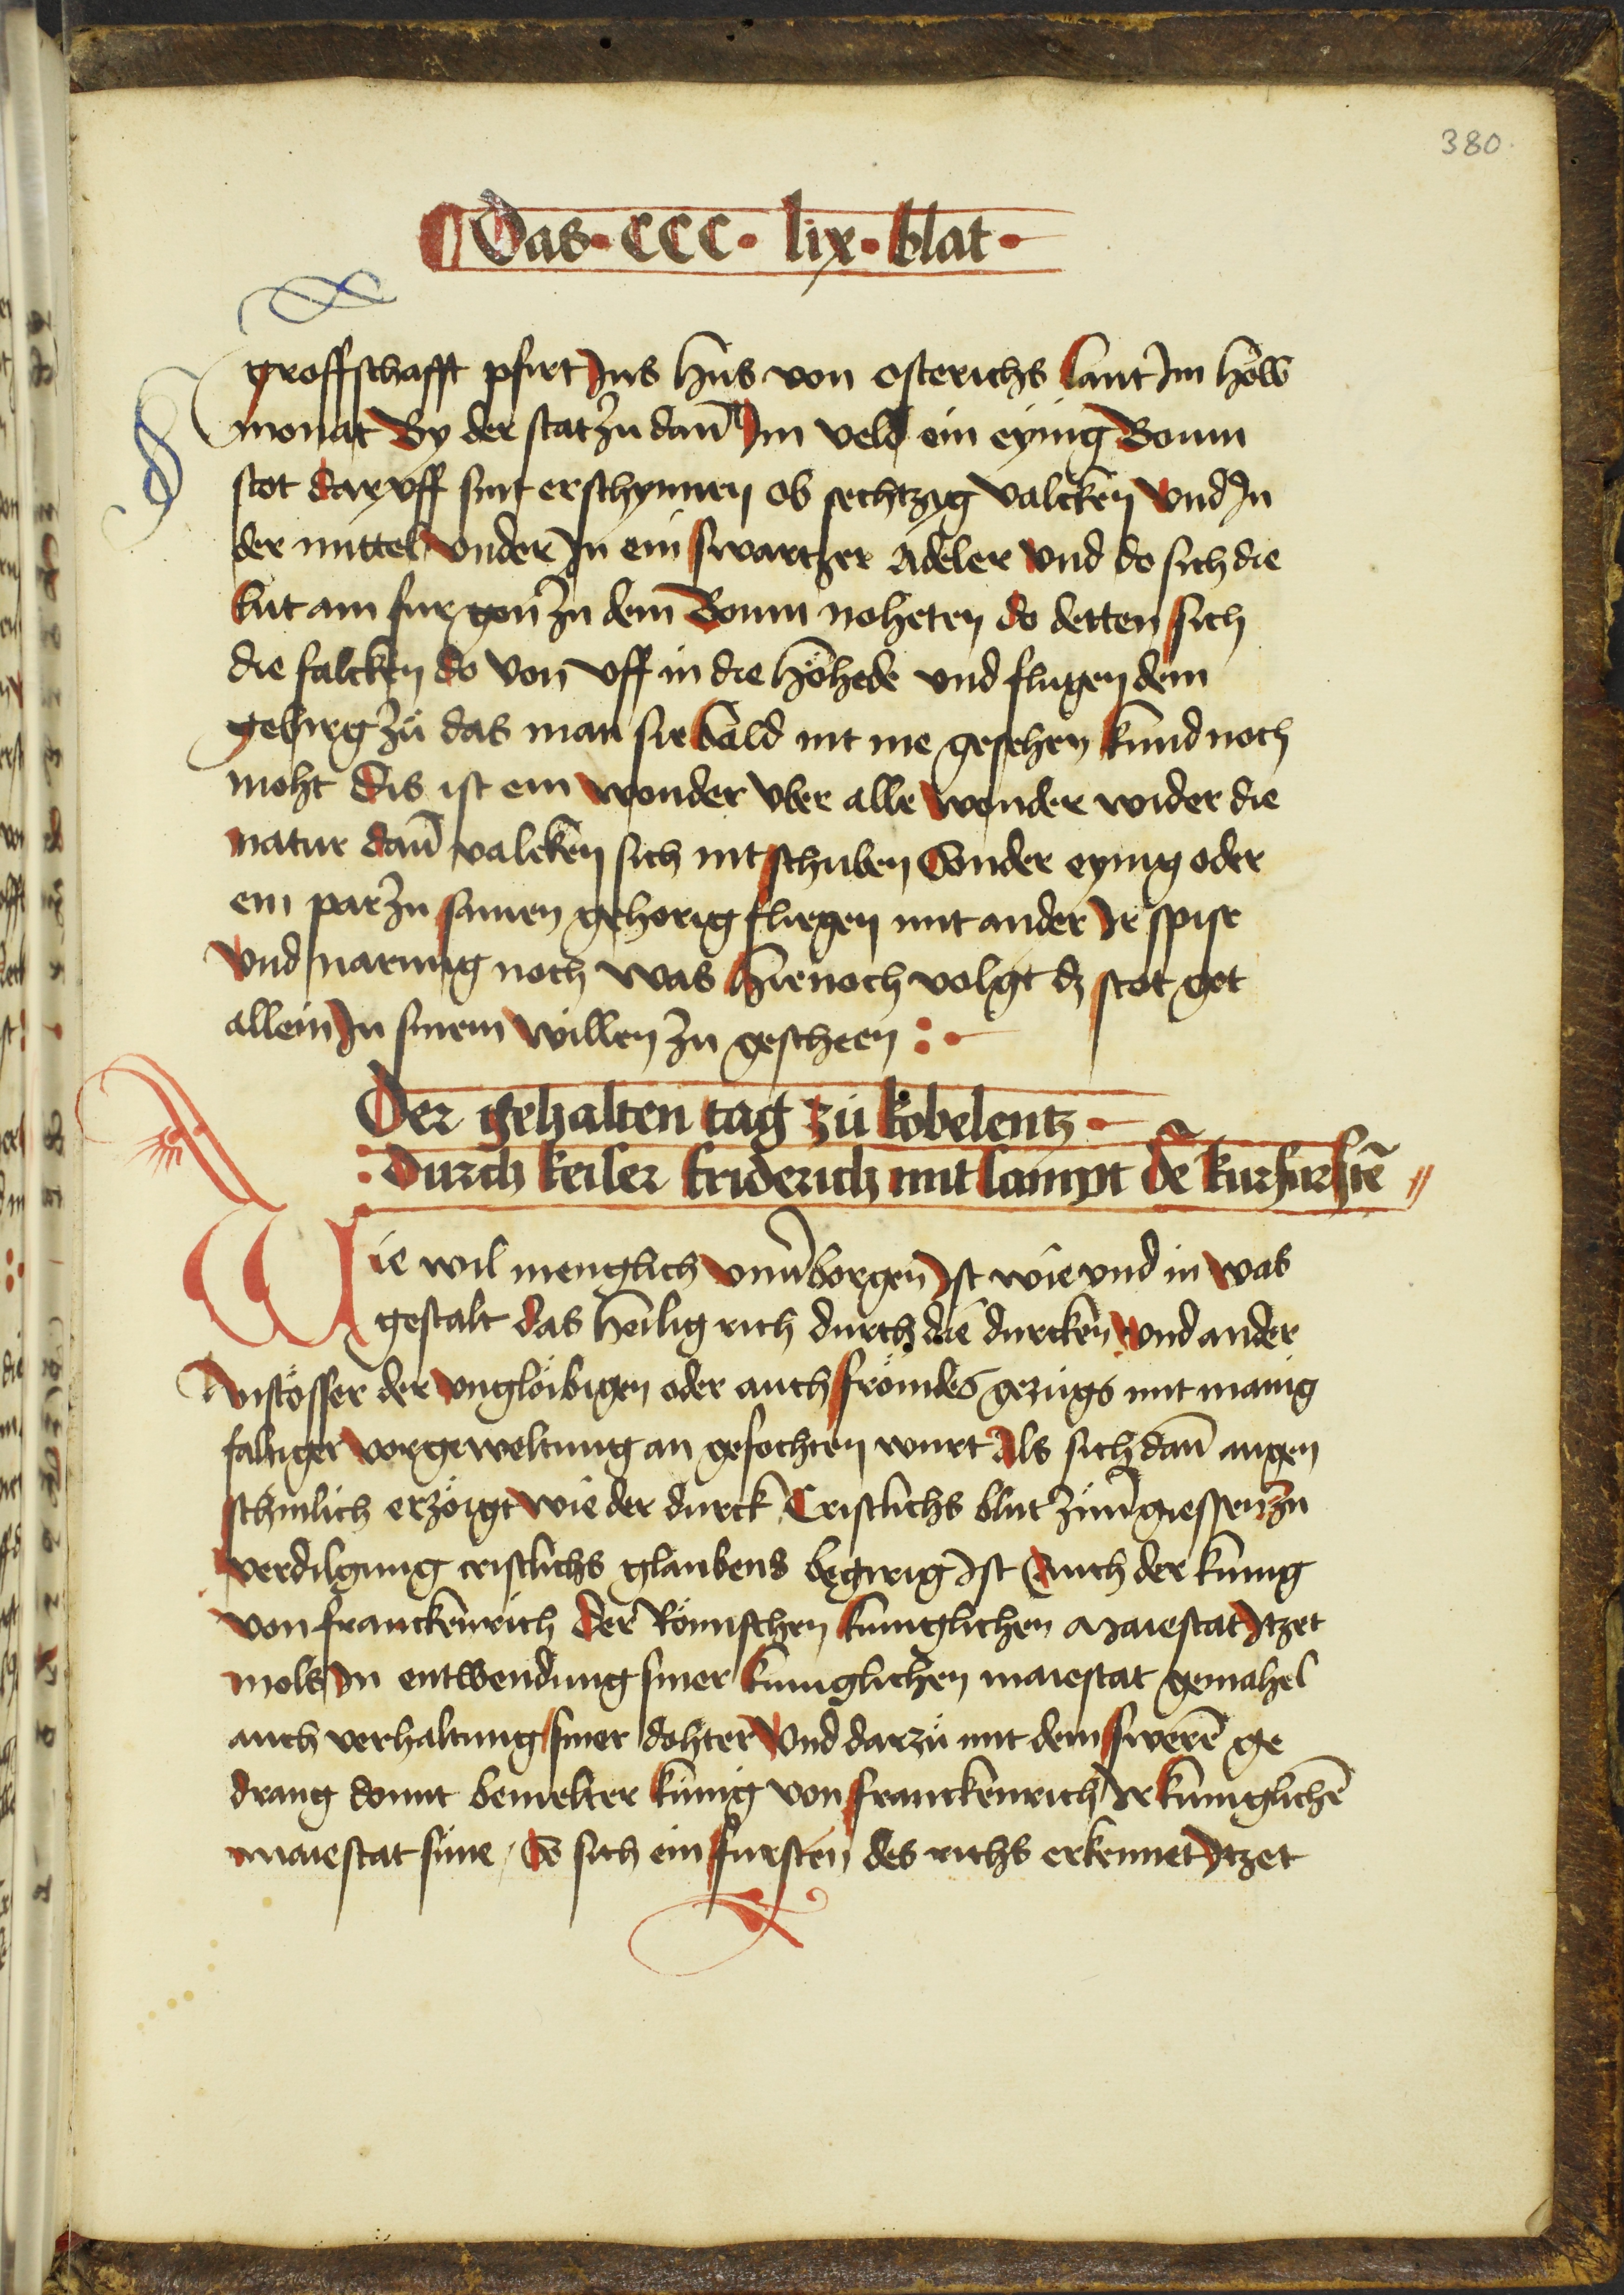 380.
Das · CCC · lix · blat ·
groffschafft pfirt Jns hus von osterichs lant Jm höw
monat By der stat zu dan̄ Jm veld ein eynig Boum
stot dar vff sint erschynnen ob sechtzig valcken Vnd Jn
der mittel vnder Jn ein swartzer Adeler vnd do sich die
lut am fur gon zu dem Boum noheten do detten sich
die falcken do von vff in die höhede vnd flugen dem
gebirg zů das man sie bald nit me gesehen kund noch
moht Dis ist ein wonder vber alle wonder wider die
natur dan̄ valcken sich nit schuben Sonder eynig oder
ein par zu samen gehorig fliegen mit ander Jr spise
vnd narung noch was hie noch volgt dz stot got
allein Jn sinem willen zu gescheen :·
Der gehalten tag zů kobelentz ·
: durch keiser friderich mit sampt dē kurfurstē //
Wie wil menglich vnuerborgen Jst wie vnd in was
gestalt das heilig rich durch die durcken vnd ander
Anstösser der vnglöibigen oder auch frömdes gezugs mit manig
faltiger vorgeweltung an gefochten wurt Als sich dan̄ augen
schinlich erzöigt wie der durck Cristlichs blut züuergiessen zu
verdilgung cristlichs glaubens begirig Jst Auch der kunig
von franckenrich Der Römischen kuniglichen Maiestat Jtzet
mols Jn entwendung siner kuniglichen maiestat gemahel
auch verhaltung siner dohter Vnd darzů mit dem swerē ge
drang domit bemelter kunig von franckenrich Jr kuniglichē
maiestat süne / So sich ein fursten des richs erkennet Jtzet